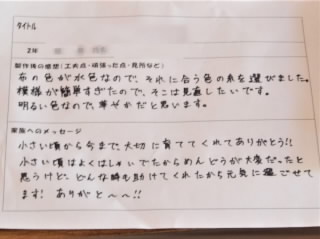 タイトル
2年
製作後の感想(工夫点・頑張った点・見所など)
布の色が水色なので、それに合う色の糸を選びました。
模様が簡単すぎたので、そこは見直したいです。
明るい色なので、華やかだと思います。
家族へのメッセージ
小さい頃から今まで、大切に育ててくれてありがとう!!
小さい頃はよくはしゃいでたからめんどうが大変だったと
思うけど、どんな時も助けてくれたから元気に過ごせて
ます! ありがと〜〜!!